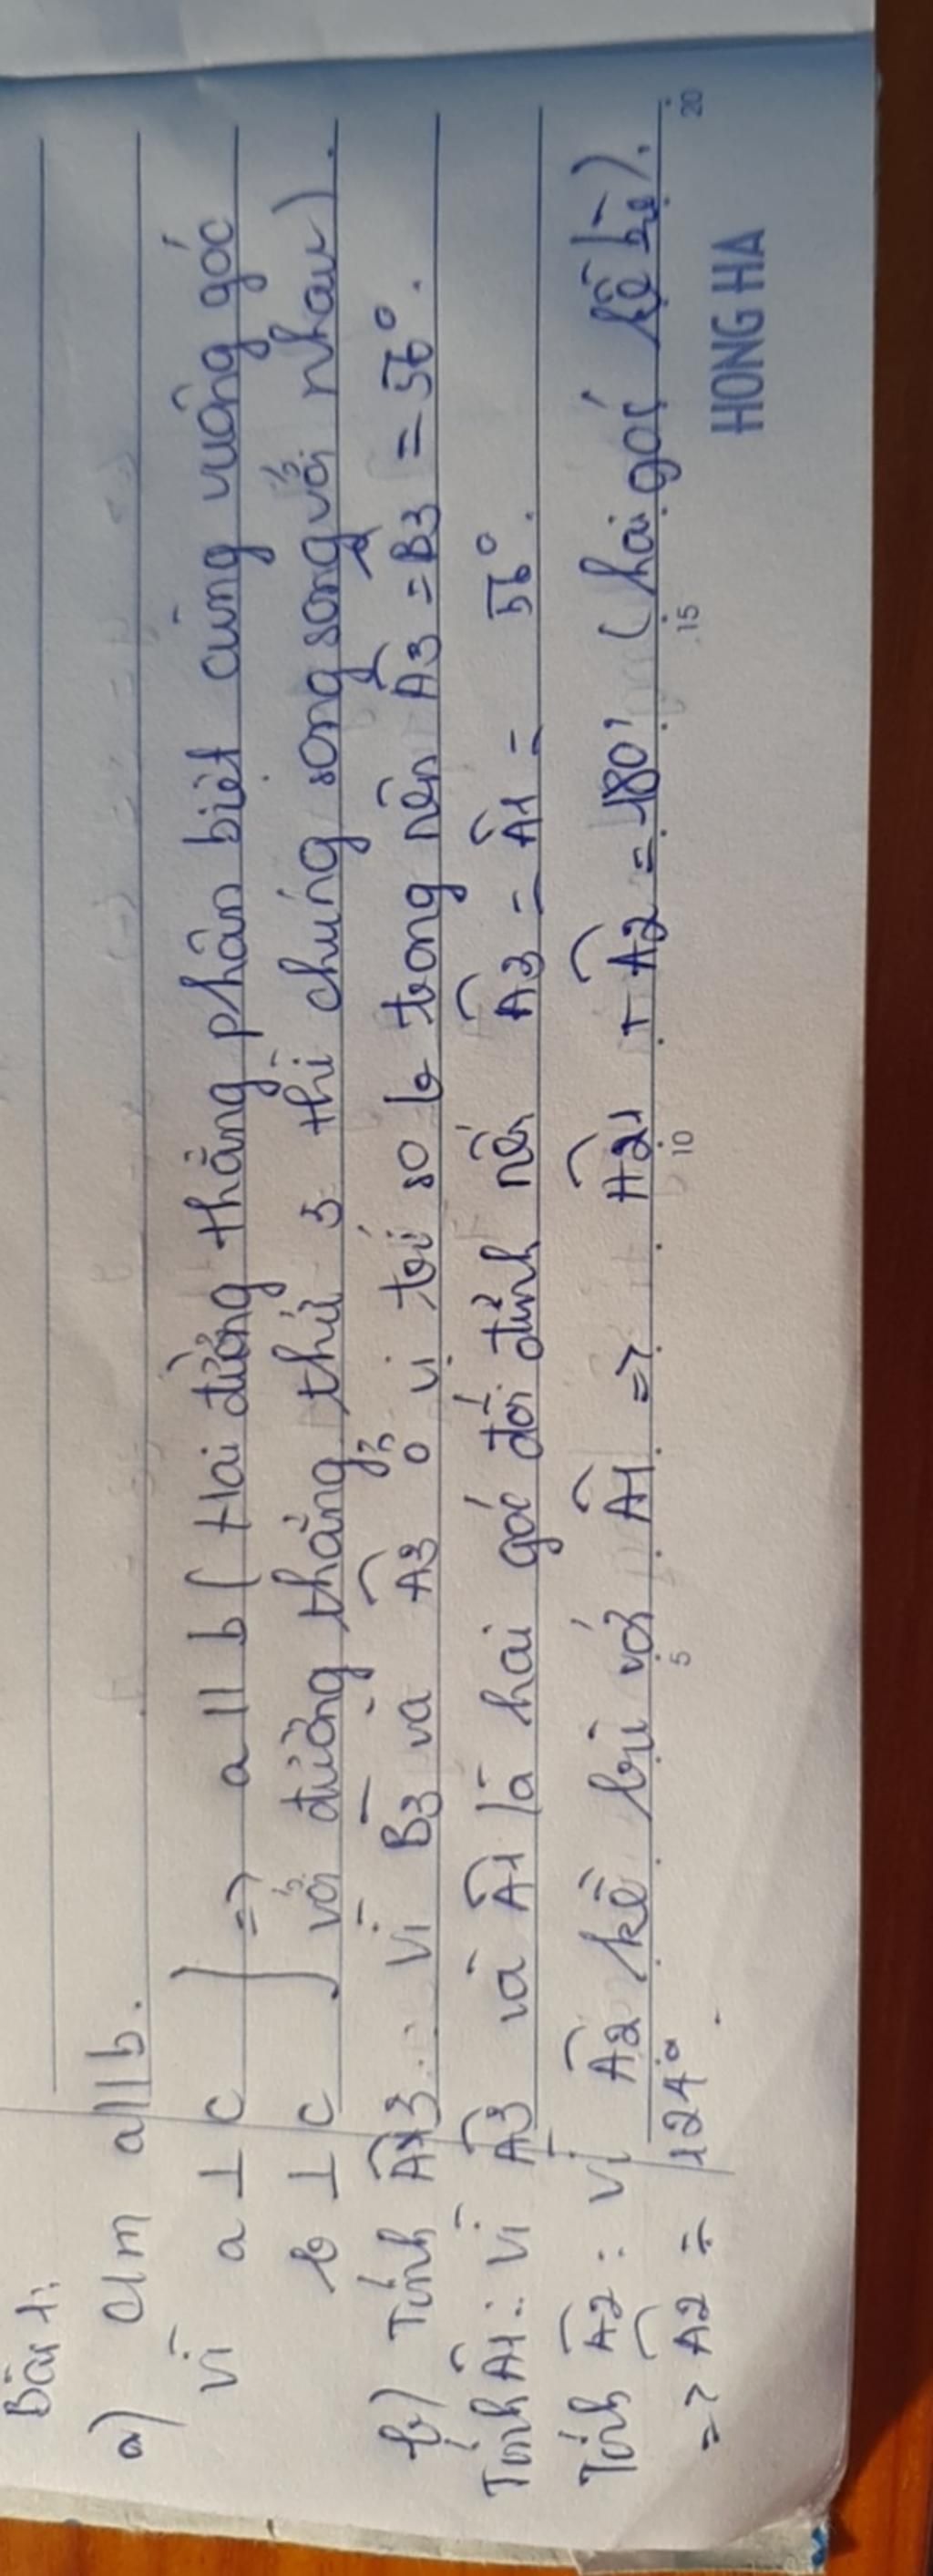 Bài 1:
a) C/m a // b.
Vì a ⊥ c } => a // b ( Hai đường thẳng phân biệt cùng vuông góc
b ⊥ c với đường thẳng thứ 3 thì chúng song song với nhau).
b) Tính Â3: Vì B̂3 và Â3 ở vị trí so le trong nên Â3 = B3 = 56°.
Tính Â1: Vì Â3 và Â1 là hai góc đối đỉnh nên Â3 = Â1 = 56°.
Tính Â2: Vì Â2 kề bù với Â1 => Â21 + Â2 = 180° (hai góc kề bù).
=> Â2 = 124°.
5 10 15 20
HONG HA